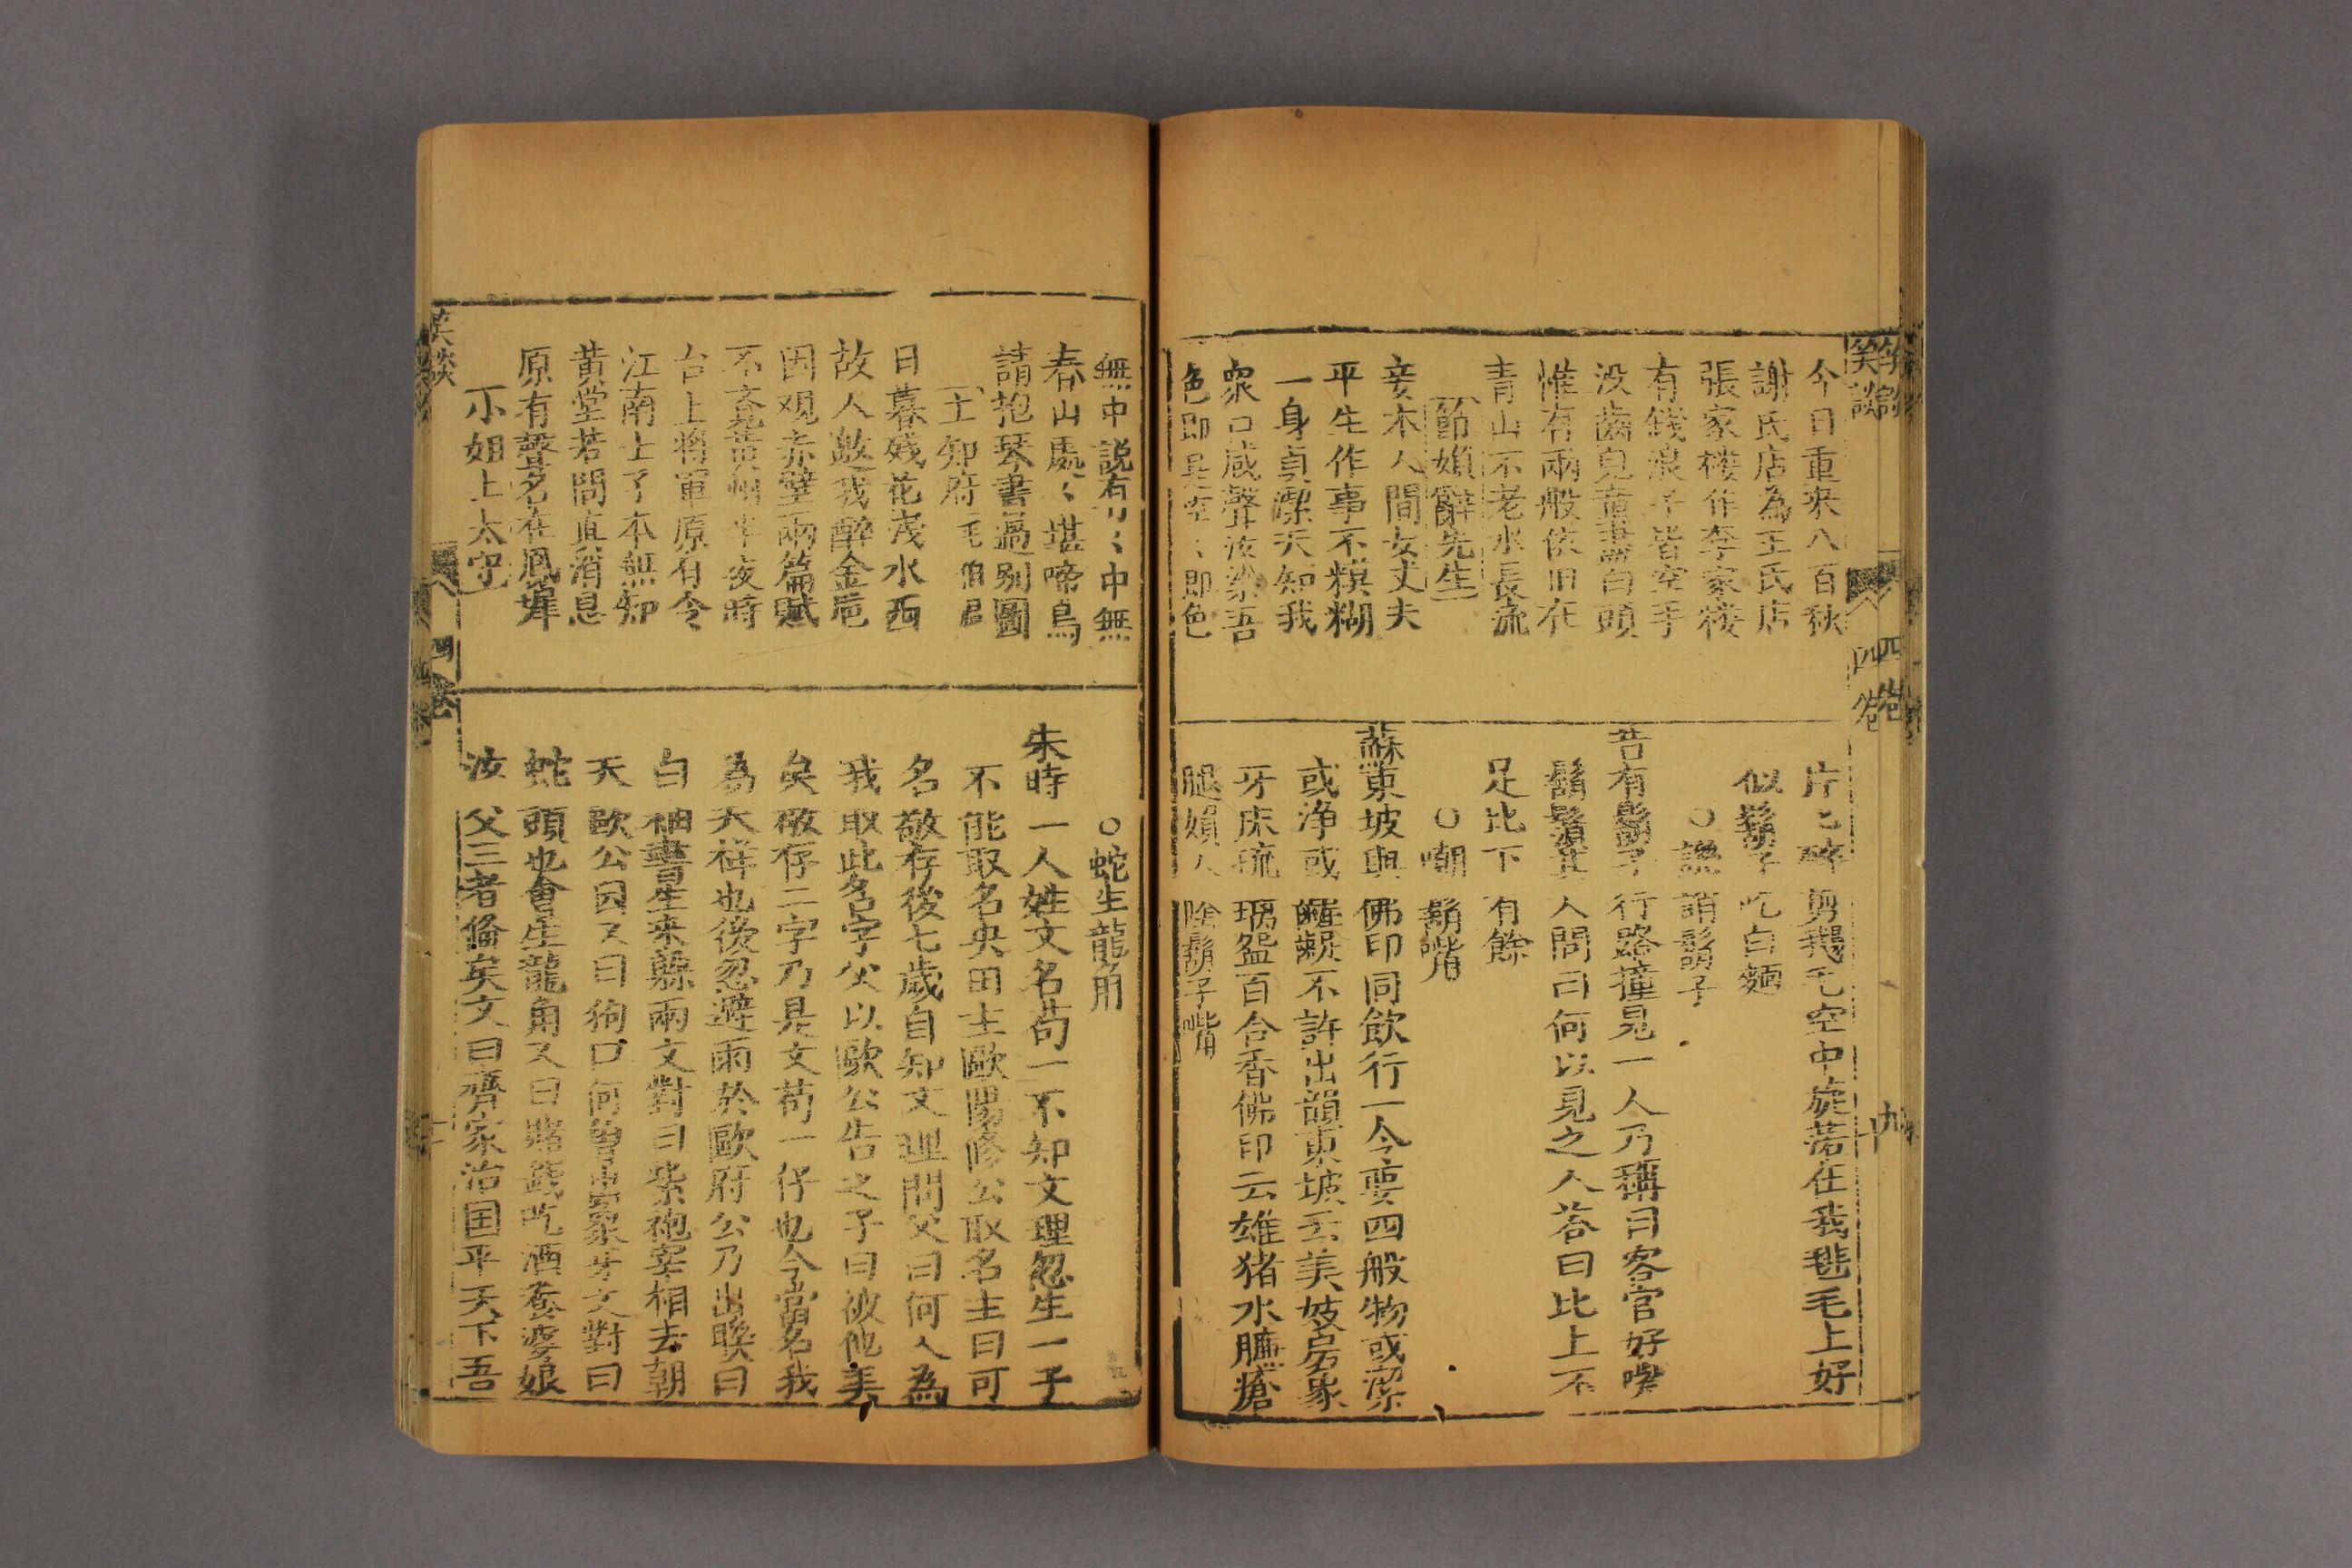 笑談
四卷
今日重來八百秋
謝氏店為王氏店
張家楼作李家楼
有錢浪子皆空手
没齒兒童盡白頭
惟有兩般依旧在
青山不老水長流
節婦辭先生
妾本人間女丈夫
平生作事不糢糊
一身貞潔天知我
衆口咸聲汝染吾
色即是空〻即色
片〻碎剪鵝毛空中旋落在我毡毛上好
似鬍子吃白麵
○譏誚鬍子
昔有鬍子行路撞見一人乃稱曰客官好嘴
鬍鬚其人問曰何以見之人答曰比上不
足比下有餘
○嘲鬍嘴
蘇東坡與佛印同飲行一令要四般物或潔
或浄或不許出韻東坡云美妓房象
牙床琉璃盌百合香佛印云雄猪水臁瘡
腿婦人陰鬍子嘴
無中説有〻中無
春山處〻堪啼鳥
請抱琴書過别圖
王知府
日暮殘花浅水西
故人邀我醉金巵
因观赤壁兩篇賦
不覺黄州半夜時
台上将軍原有令
江南士子本無知
黄堂若問直消息
原有聲名在鳳墀
小姐上太守
笑談
○蛇生龍角
朱時一人姓文名苟一不知文理忽生一子
不能取名央田主歐陽修公取名主曰可
名敬存後七歲自知文理問父曰何人為
我取此名字父以歐公告之子曰被他
矣敬存二字乃是文苟一仔也今當名我
為天祥也後忽避雨於歐府公乃出喚曰
白袖書生来躲雨文對曰紫袍宰相去朝
天歐公因又曰狗口何曾出象牙文對曰
蛇頭也會生龍角又曰賭錢吃酒養婆娘
汝父三者俻矣文曰齊家治国平天下吾